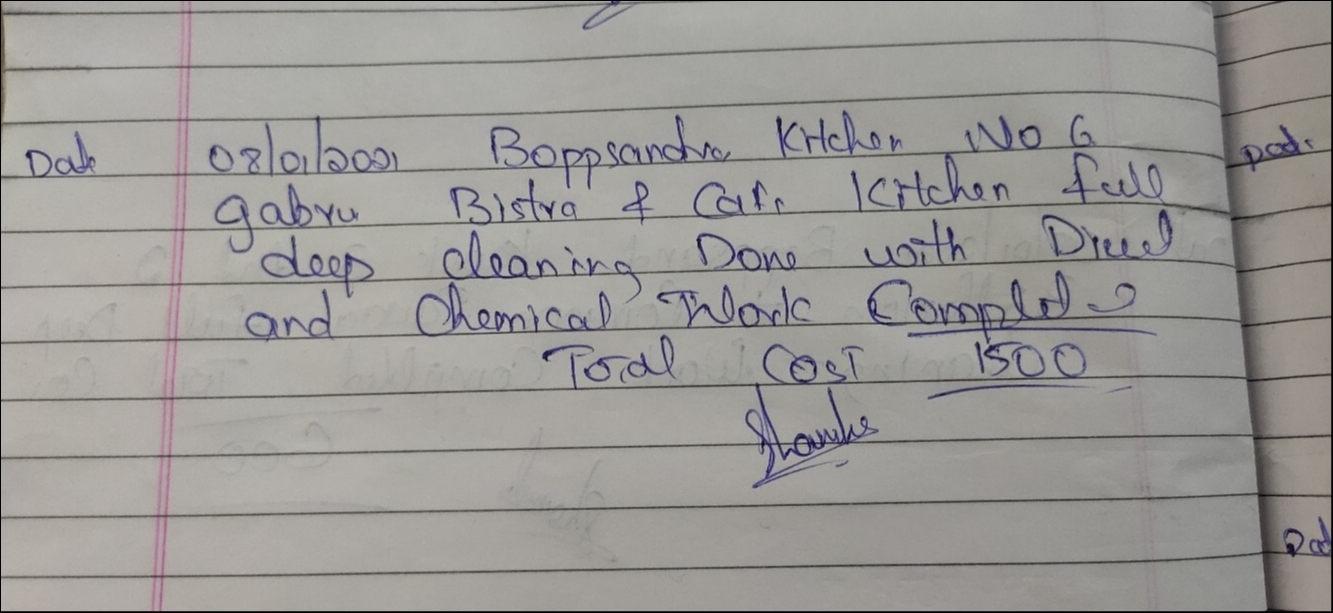 Date 08/01/2021 Boppsandra Kitchen No 6
gabru Bistra & Cafe Kitchen full
deep cleaning Done with Diesel
and Chemical Work Complet
Total Cost 1500
Thanks